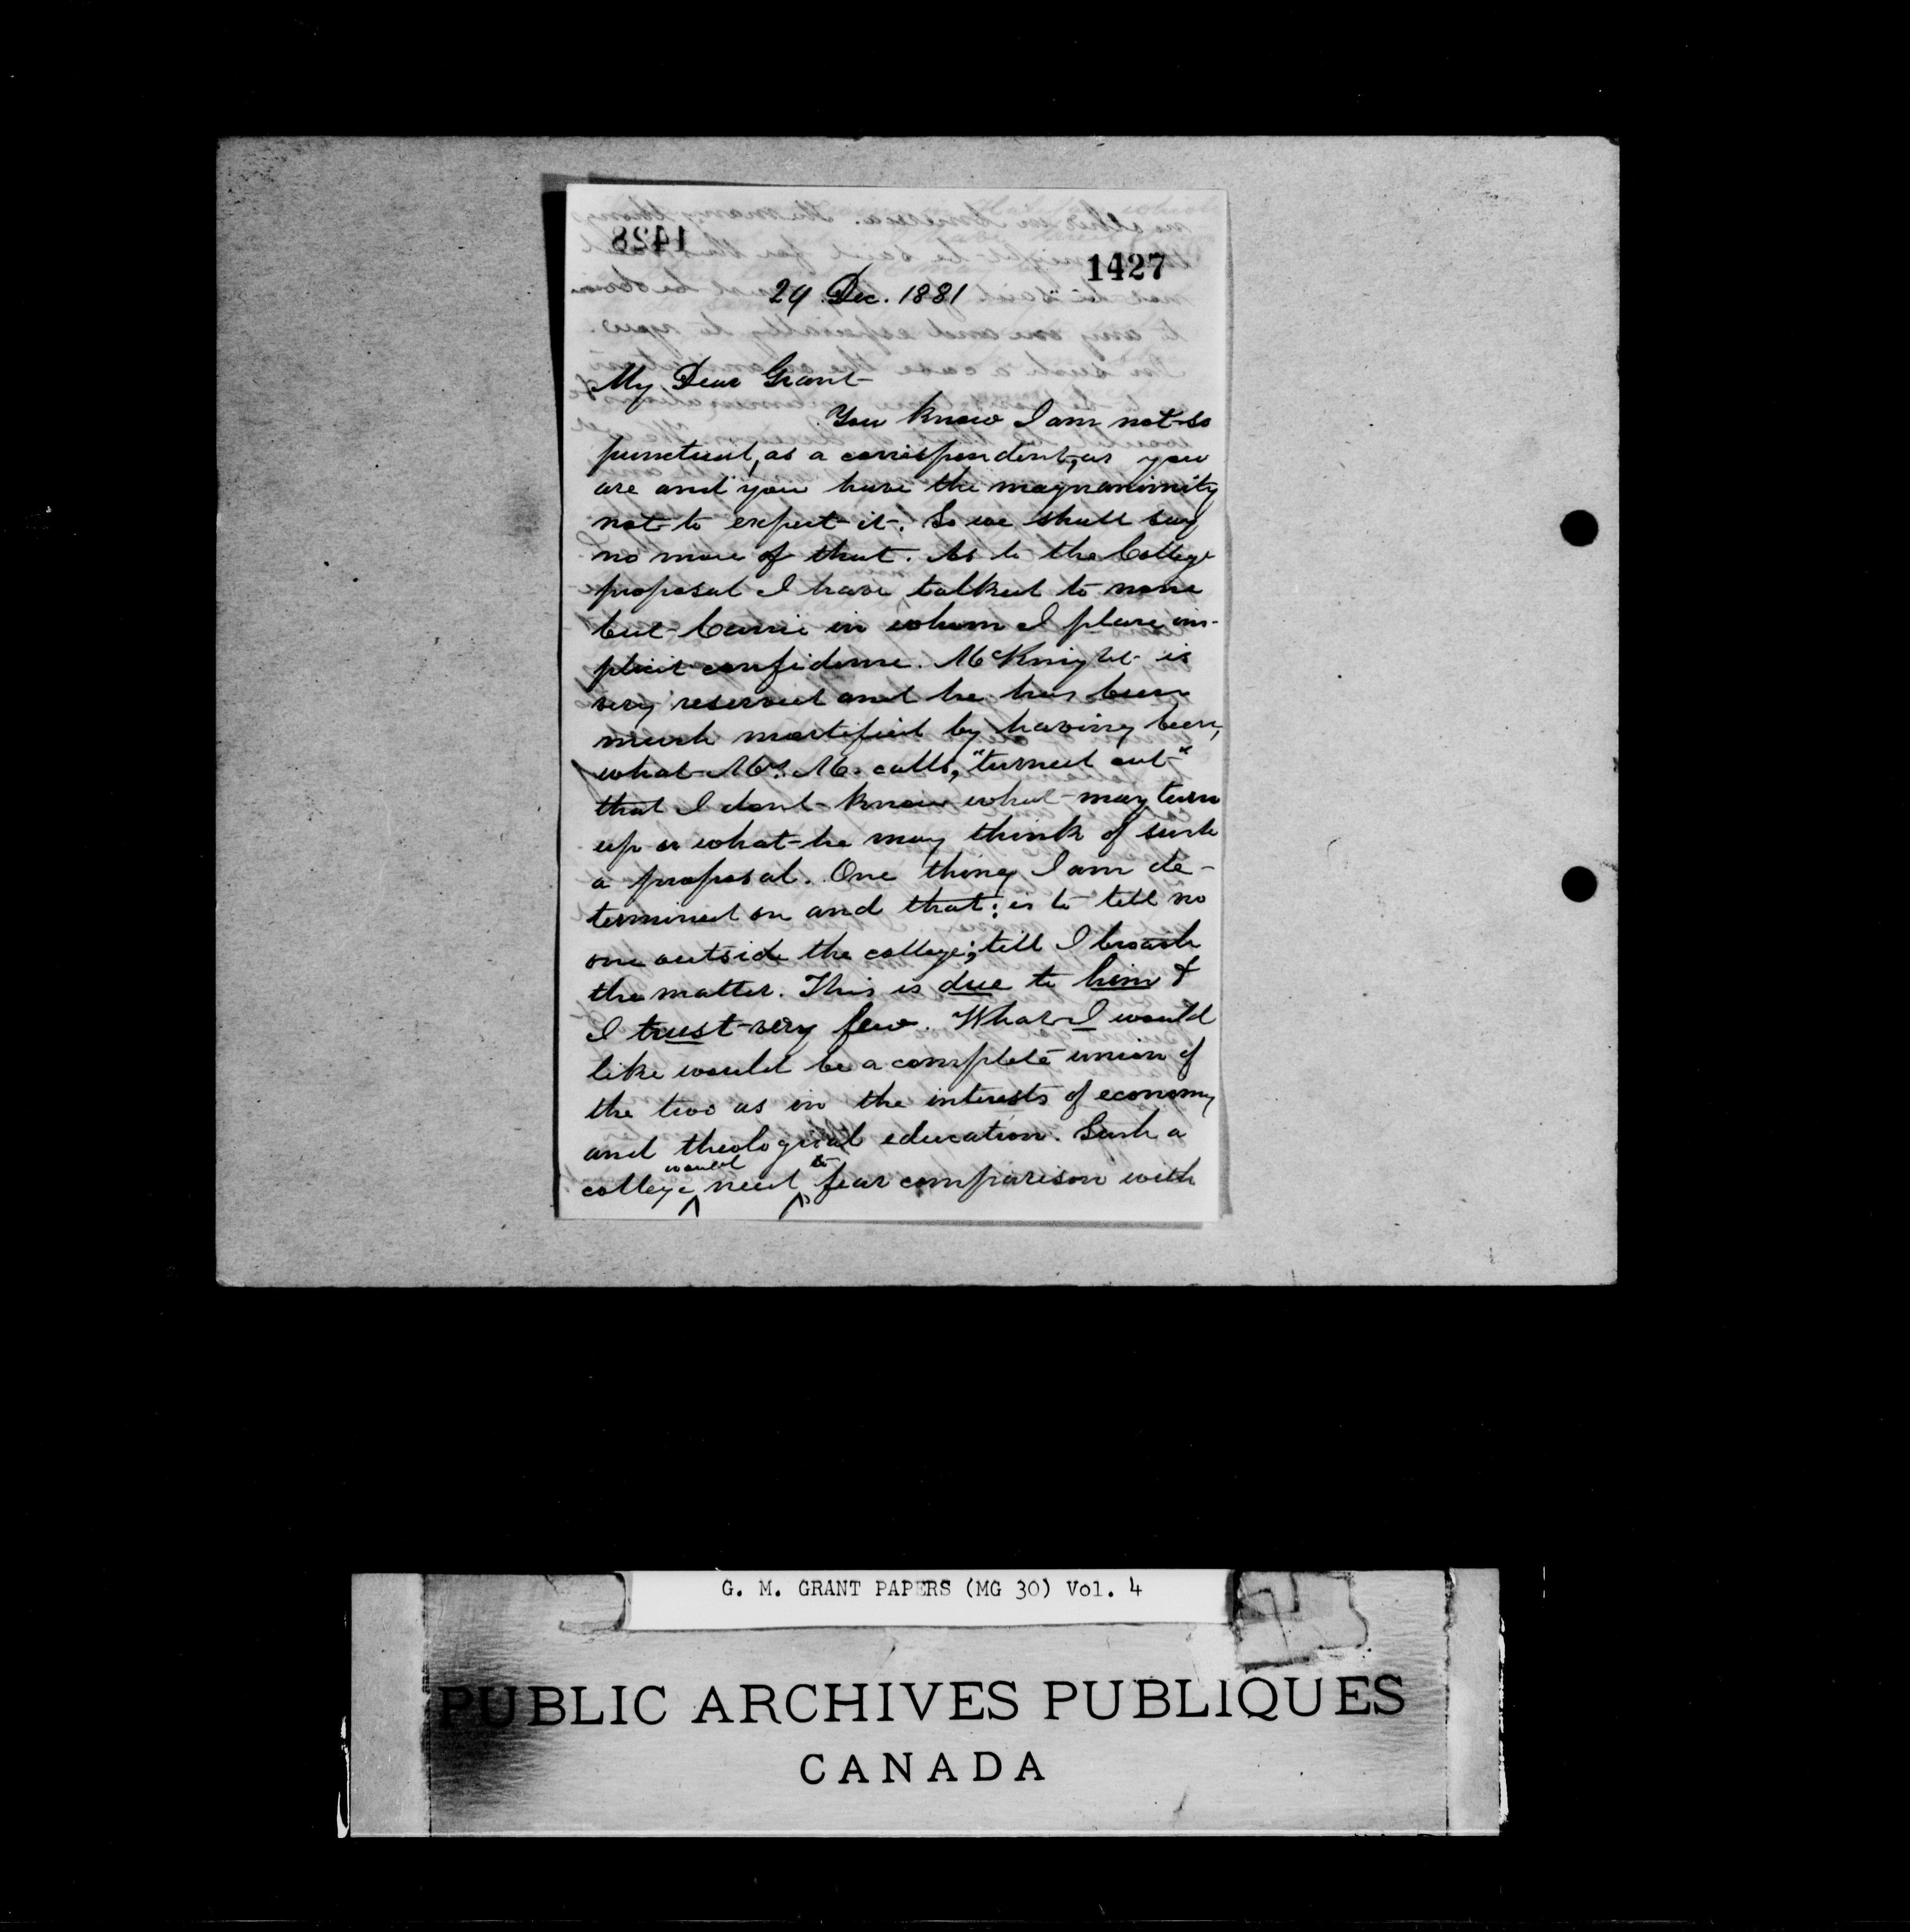 1428
1427
29 Dec. 1881
My Dear Grant
You know I am not so
punctual, as a correspondent, as you
are and you have the magnanimity
not to expect it. So we shall say
no more of that. As to the College
proposal I have talked to none
but Currie in whom I place im-
plicit confidence. McKnight is
very reserved and he has been
much mortified by having been,
what Mrs. M. calls, "turned out"
that I dont know what may turn
up or what he may think of such
a proposal. One thing I am de-
termined on and that: is to tell no
one outside the college; till I broach
the matter. This is due to him &
I trust very few. What I would
like would be a complete union of
the two as in the interests of economy
and theological education. Such a
college would need to fear comparison with
G. M. GRANT PAPERS (MG 30) Vol. 4
PUBLIC ARCHIVES PUBLIQUES
CANADA